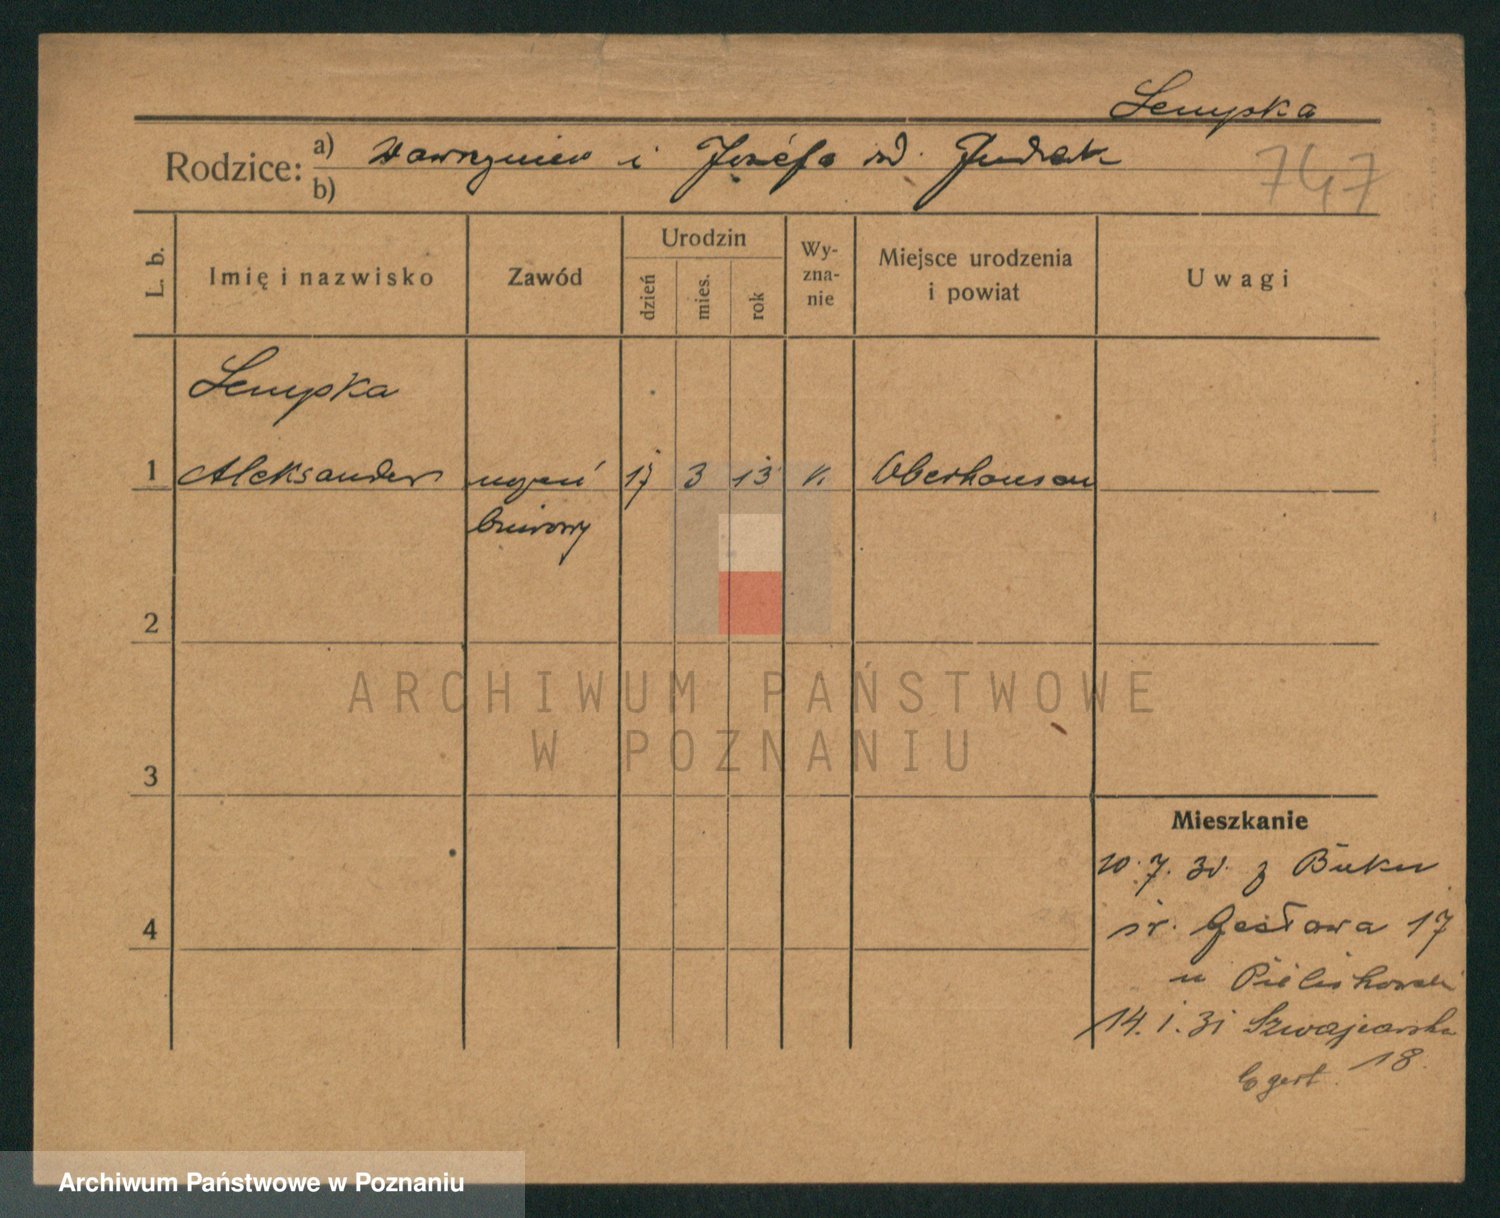 Lempka
Rodzice: a) Wawrzyniec i Józefa zd. Judrak
b)
747
L. b.
Imię i nazwisko
Zawód
Urodzin
dzień
mies.
rok
Wy-
zna-
nie
Miejsce urodzenia
i powiat
Uwagi
Lempka
1 Aleksander uczeń 17 3 13 k. Oberhausen
biurowy
2
3
4
ARCHIWUM PAŃSTWOWE
W POZNANIU
Mieszkanie
10.7.30. z Buku
śr. 17
u
14.1.31 Szwajcarska
18.
Egert.
Archiwum Państwowe w Poznaniu